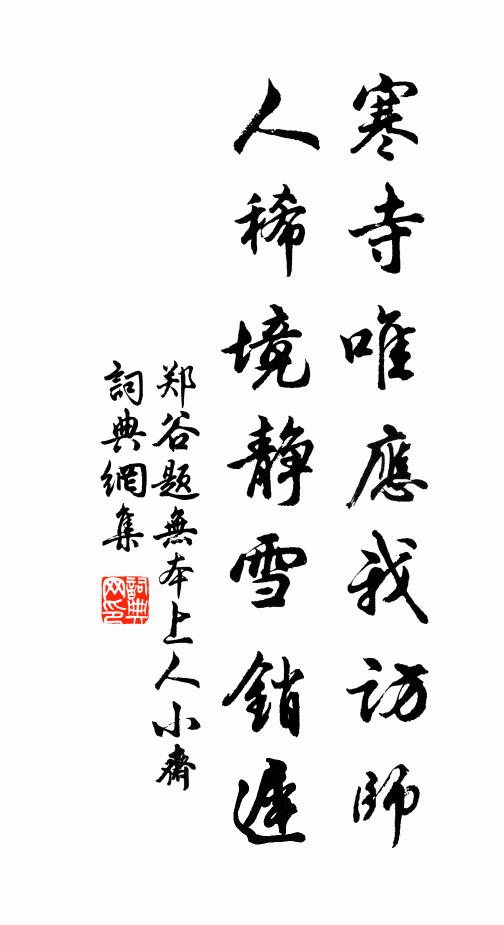 寒寺唯應我訪師
人稀境静雪銷遲
郑谷题無本上人小齋
詞典網集
詞典網印